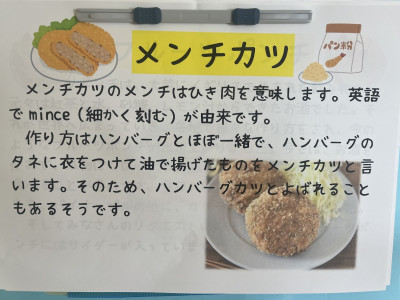 メンチカツ
パン粉
メンチカツのメンチはひき肉を意味します。英語
で mince（細かく刻む）が由来です。
作り方はハンバーグとほぼ一緒で、ハンバーグの
タネに衣をつけて油で揚げたものをメンチカツと言
います。そのため、ハンバーグカツとよばれること
もあるそうです。